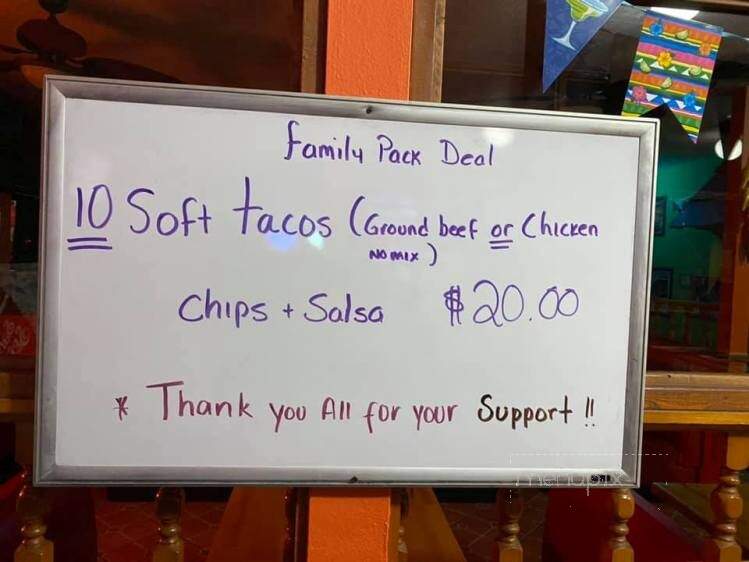 Family Pack Deal
10 Soft tacos (Ground beef or Chicken
NO MIX)
Chips + Salsa $20.00
* Thank you All for your Support !!
menupix